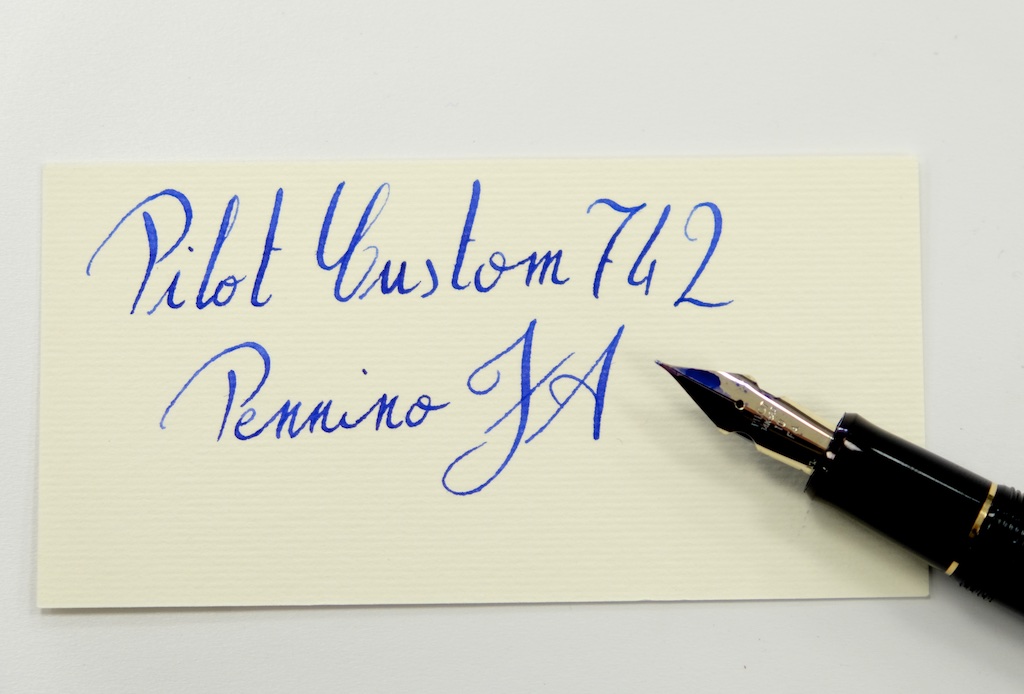 Pilot Custom 742
Pennino FA